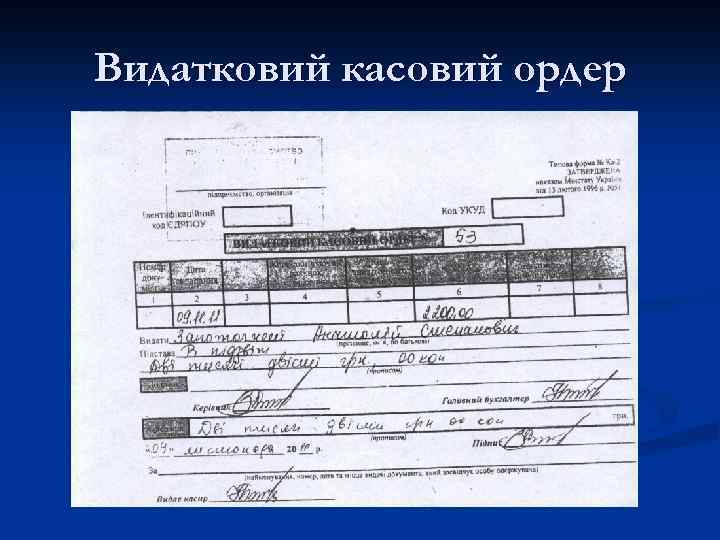 Видатковий касовий ордер
Типова форма № Ка-2
ЗАТВЕРДЖЕНА
наказом Мінстату України
від 15 лютого 1996 р. №51
підприємство, організація
Ідентифікаційний
код ЄДРПОУ
Код УКУД
ВИДАТКОВИЙ КАСОВИЙ ОРДЕР 53
Номер Дата
1 2 3 4 5 6 7 8
09.11.11 2200,00
Видати Анатолій Степанович
(прізвище, ім'я, по батькові)
Підстава В підзвіт
Дві тисячі двісті грн. 00 коп
(прописом)
Керівник Головний бухгалтер
Дві тисячі двісті грн 00 коп грн.
(прописом)
"09" листопада 20 р. Підпис
За
(найменування, номер, дата та місце видачі документа, який засвідчує особу одержувача)
Видав касир